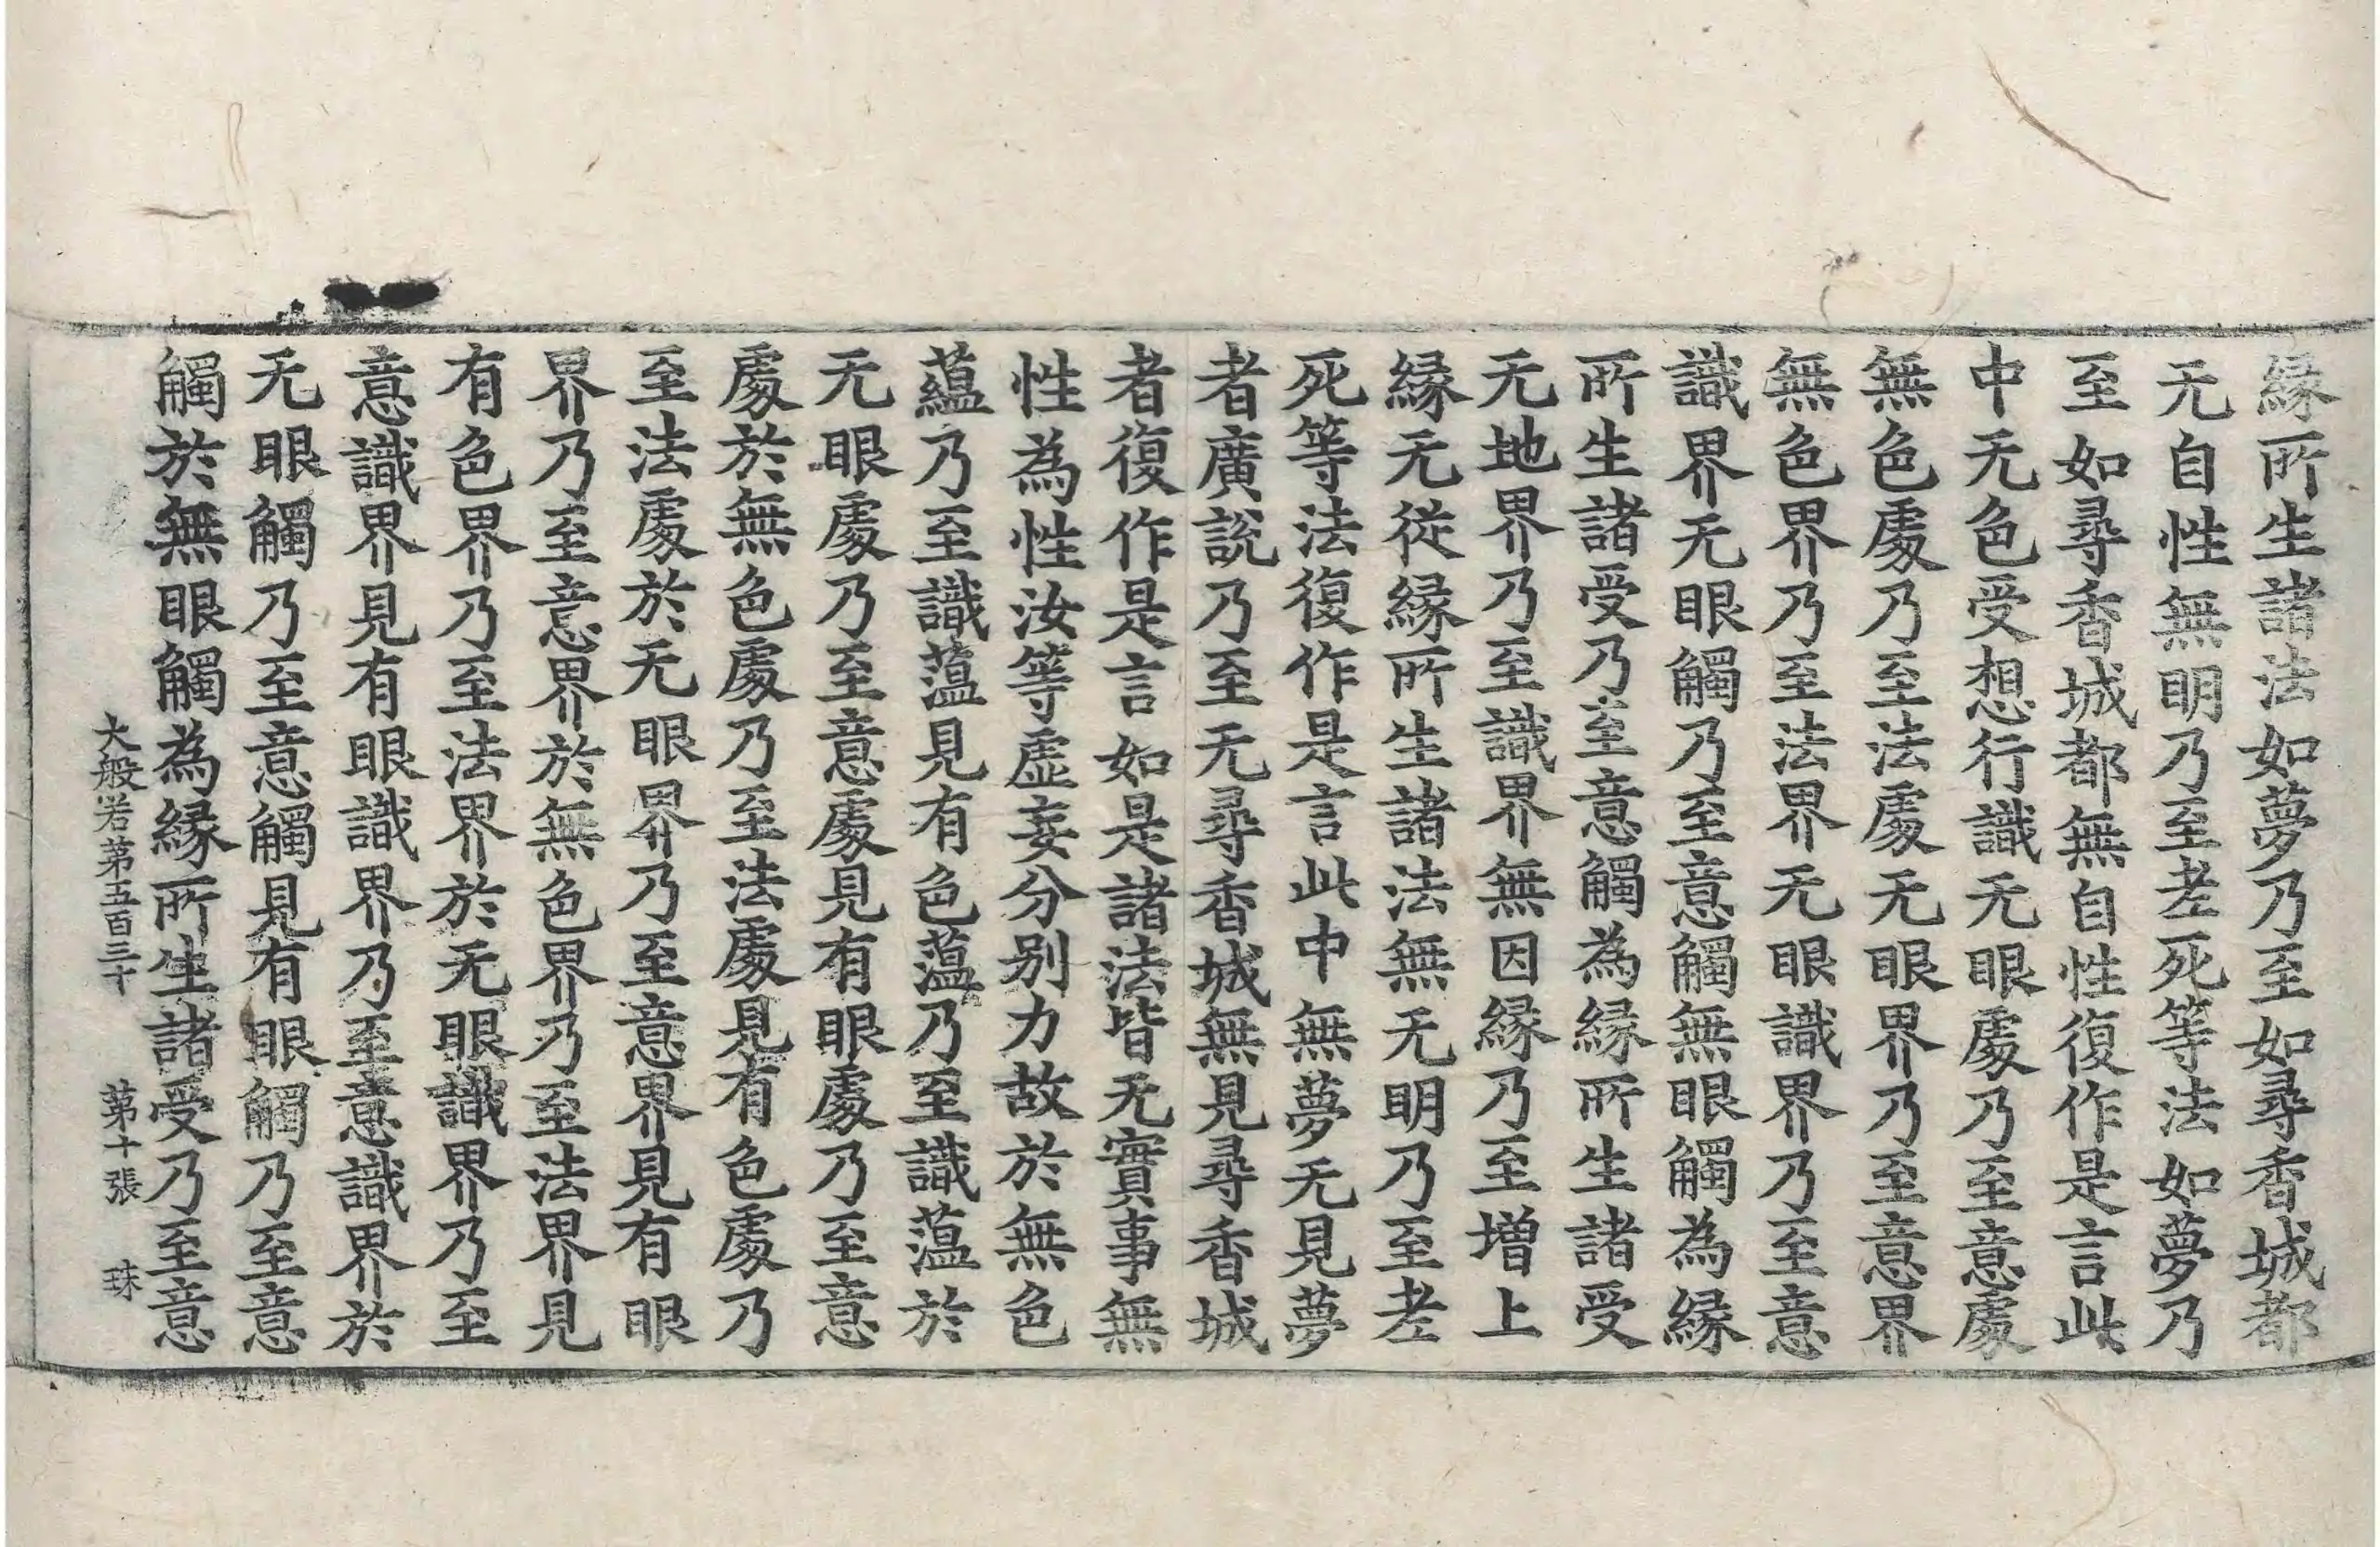 縁所生諸法如夢乃至如尋香城都
无自性無明乃至老死等法如夢乃
至如尋香城都無自性復作是言此
中无色受想行識无眼處乃至意處
無色處乃至法處无眼界乃至意界
無色界乃至法界无眼識界乃至意
識界无眼觸乃至意觸無眼觸為縁
所生諸受乃至意觸為縁所生諸受
无地界乃至識界無因縁乃至增上
縁无從縁所生諸法無无明乃至老
死等法復作是言此中無夢无見夢
者廣說乃至无尋香城無見尋香城
者復作是言如是諸法皆无實事無
性為性汝等虛妄分別力故於無色
蘊乃至識蘊見有色蘊乃至識蘊於
无眼處乃至意處見有眼處乃至意
處於無色處乃至法處見有色處乃
至法處於无眼界乃至意界見有眼
界乃至意界於無色界乃至法界見
有色界乃至法界於无眼識界乃至
意識界見有眼識界乃至意識界於
无眼觸乃至意觸見有眼觸乃至意
觸於無眼觸為縁所生諸受乃至意
大般若第五百三十 第十張 珠